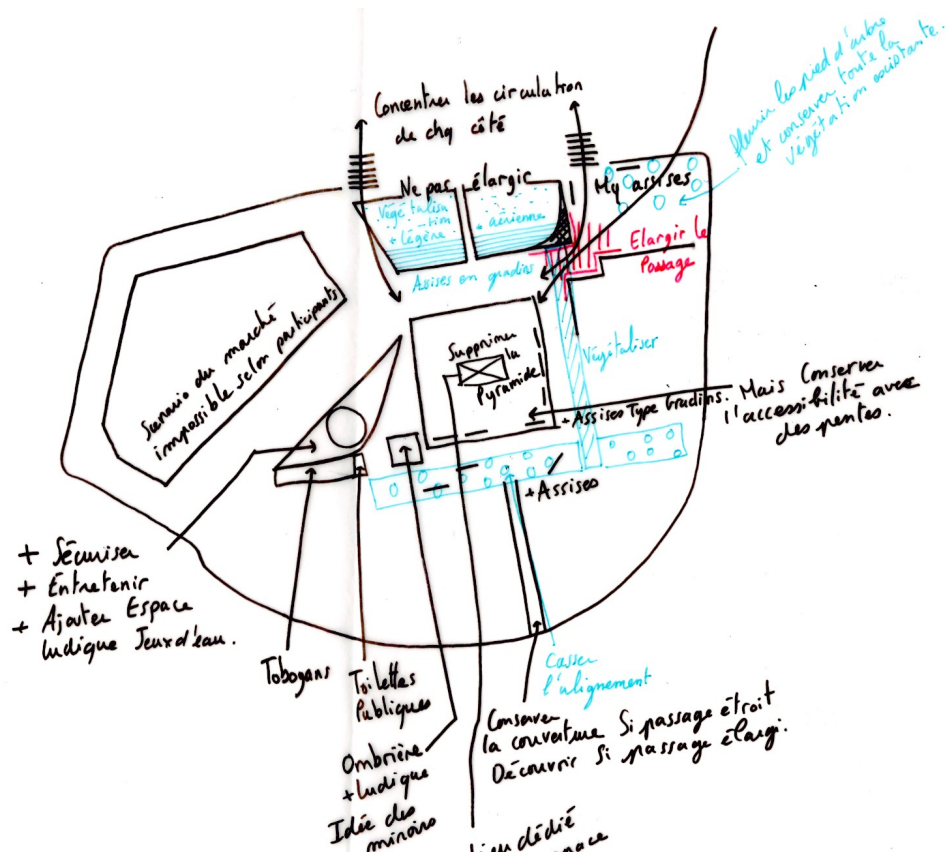 Concentrer les circulation
de chq côté
fleurir les pied d'arbre
et conserver toute la
végétation existante.
Ne pas élargir
Mq assises
Végétalisa
tion
+ légère
+ aérienne
Elargir le
Passage
Assises en gradins
Scenario du marché
impossible selon participants
Supprimer
la
Pyramide
Végétaliser
+ Assises Type Gradins.
Mais Conserver
l'accessibilité avec
des pentes.
+ Assises
+ Sécuriser
+ Entretenir
+ Ajouter Espace
ludique Jeux d'eau.
Tobogans
Toilettes
Publiques
Casser
l'alignement
Conserver
la couverture Si passage étroit
Découvrir Si passage élargi.
Ombrière
+ ludique
Idée des
miroirs
dédié